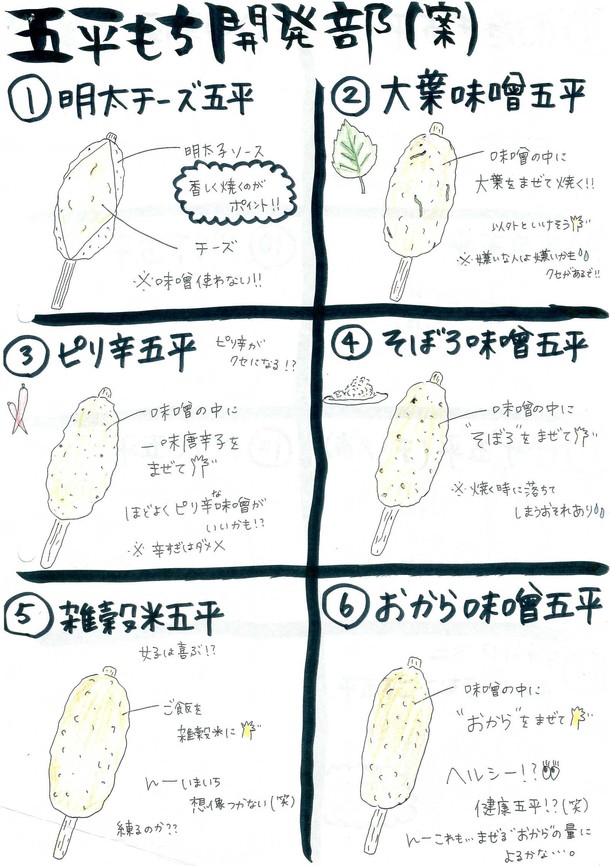 五平もち開発部(案)
① 明太チーズ五平
明太子ソース
香しく焼くのが
ポイント!!
チーズ
※味噌使わない!!
② 大葉味噌五平
味噌の中に
大葉をまぜて焼く!!
以外といけそう
※嫌いな人は嫌いかも
クセがあるぞ!!
③ ピリ辛五平
ピリ辛が
クセになる!?
味噌の中に
味唐辛子を
まぜて
ほどよくピリ辛な味噌が
いいかも!?
※辛すぎはダメ×
④ そぼろ味噌五平
味噌の中に
"そぼろ"をまぜて
※焼く時に落ちて
しまうおそれあり
⑤ 雑穀米五平
女子は喜ぶ!?
ご飯を
雑穀米に
んーいまいち
想像つかない(笑)
練るのか??
⑥ おから味噌五平
味噌の中に
"おから"をまぜて
ヘルシー!?
健康五平!?(笑)
んーこれも…まぜる"おから"の量に
よるかな…。